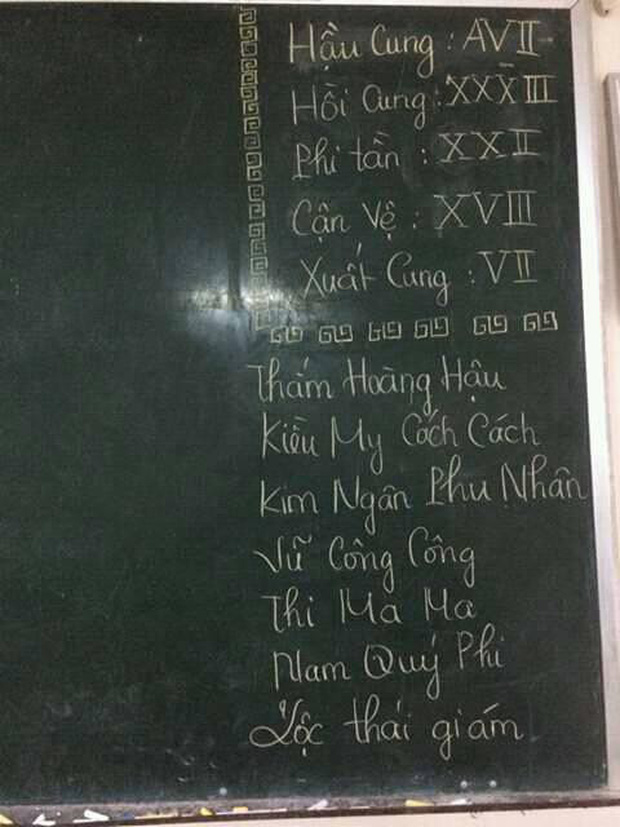 Hậu Cung : AVII
Hồi Cung : XXXIII
Phi tần : XXII
Cận Vệ : XVIII
Xuất Cung : VII
Thắm Hoàng Hậu
Kiều My Cách Cách
Kim Ngân Phu Nhân
Vũ Công Công
Thi Ma Ma
Nam Quý Phi
Lộc thái giám